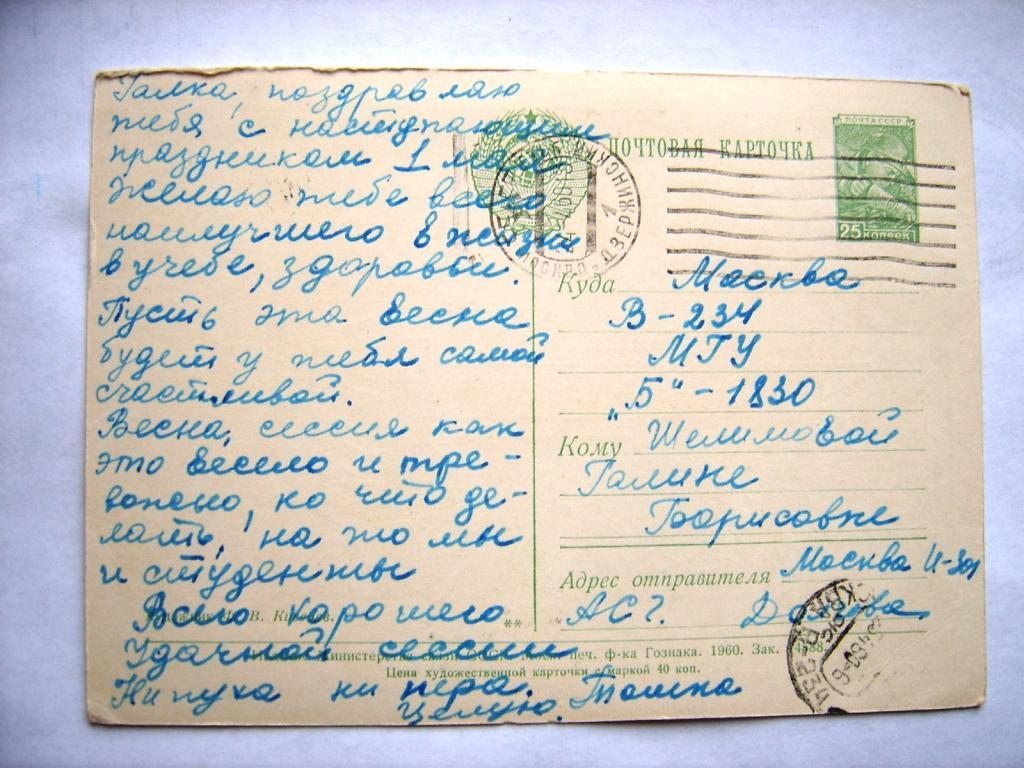 Галка, поздравляю
тебя с наступающим
праздникам 1 мая
Желаю тебе всего
наилучшего в жизни
в учебе, здоровьи.
Пусть эта весна
будет у тебя самой
счастливой.
Весна, сессия как
это весело и тре-
вожно, но что де-
лать, на то мы
и студенты
Всего хорошего
Удачной сессии
Ни пуха ни пера.
Целую. Томка
ПОЧТОВАЯ КАРТОЧКА
ПОЧТА СССР
25 КОПЕЕК
МОСКВА ДЗЕРЖИНСКИЙ 1
Куда Москва
В-234
МГУ
„Б“-1830
Кому Шелимовой
Галине
Борисовне
Адрес отправителя Москва И-301
АС7.
В.
** 
связи печ. ф-ка Гознака. 1960. Зак.
Цена художественной карточки с маркой 40 коп.